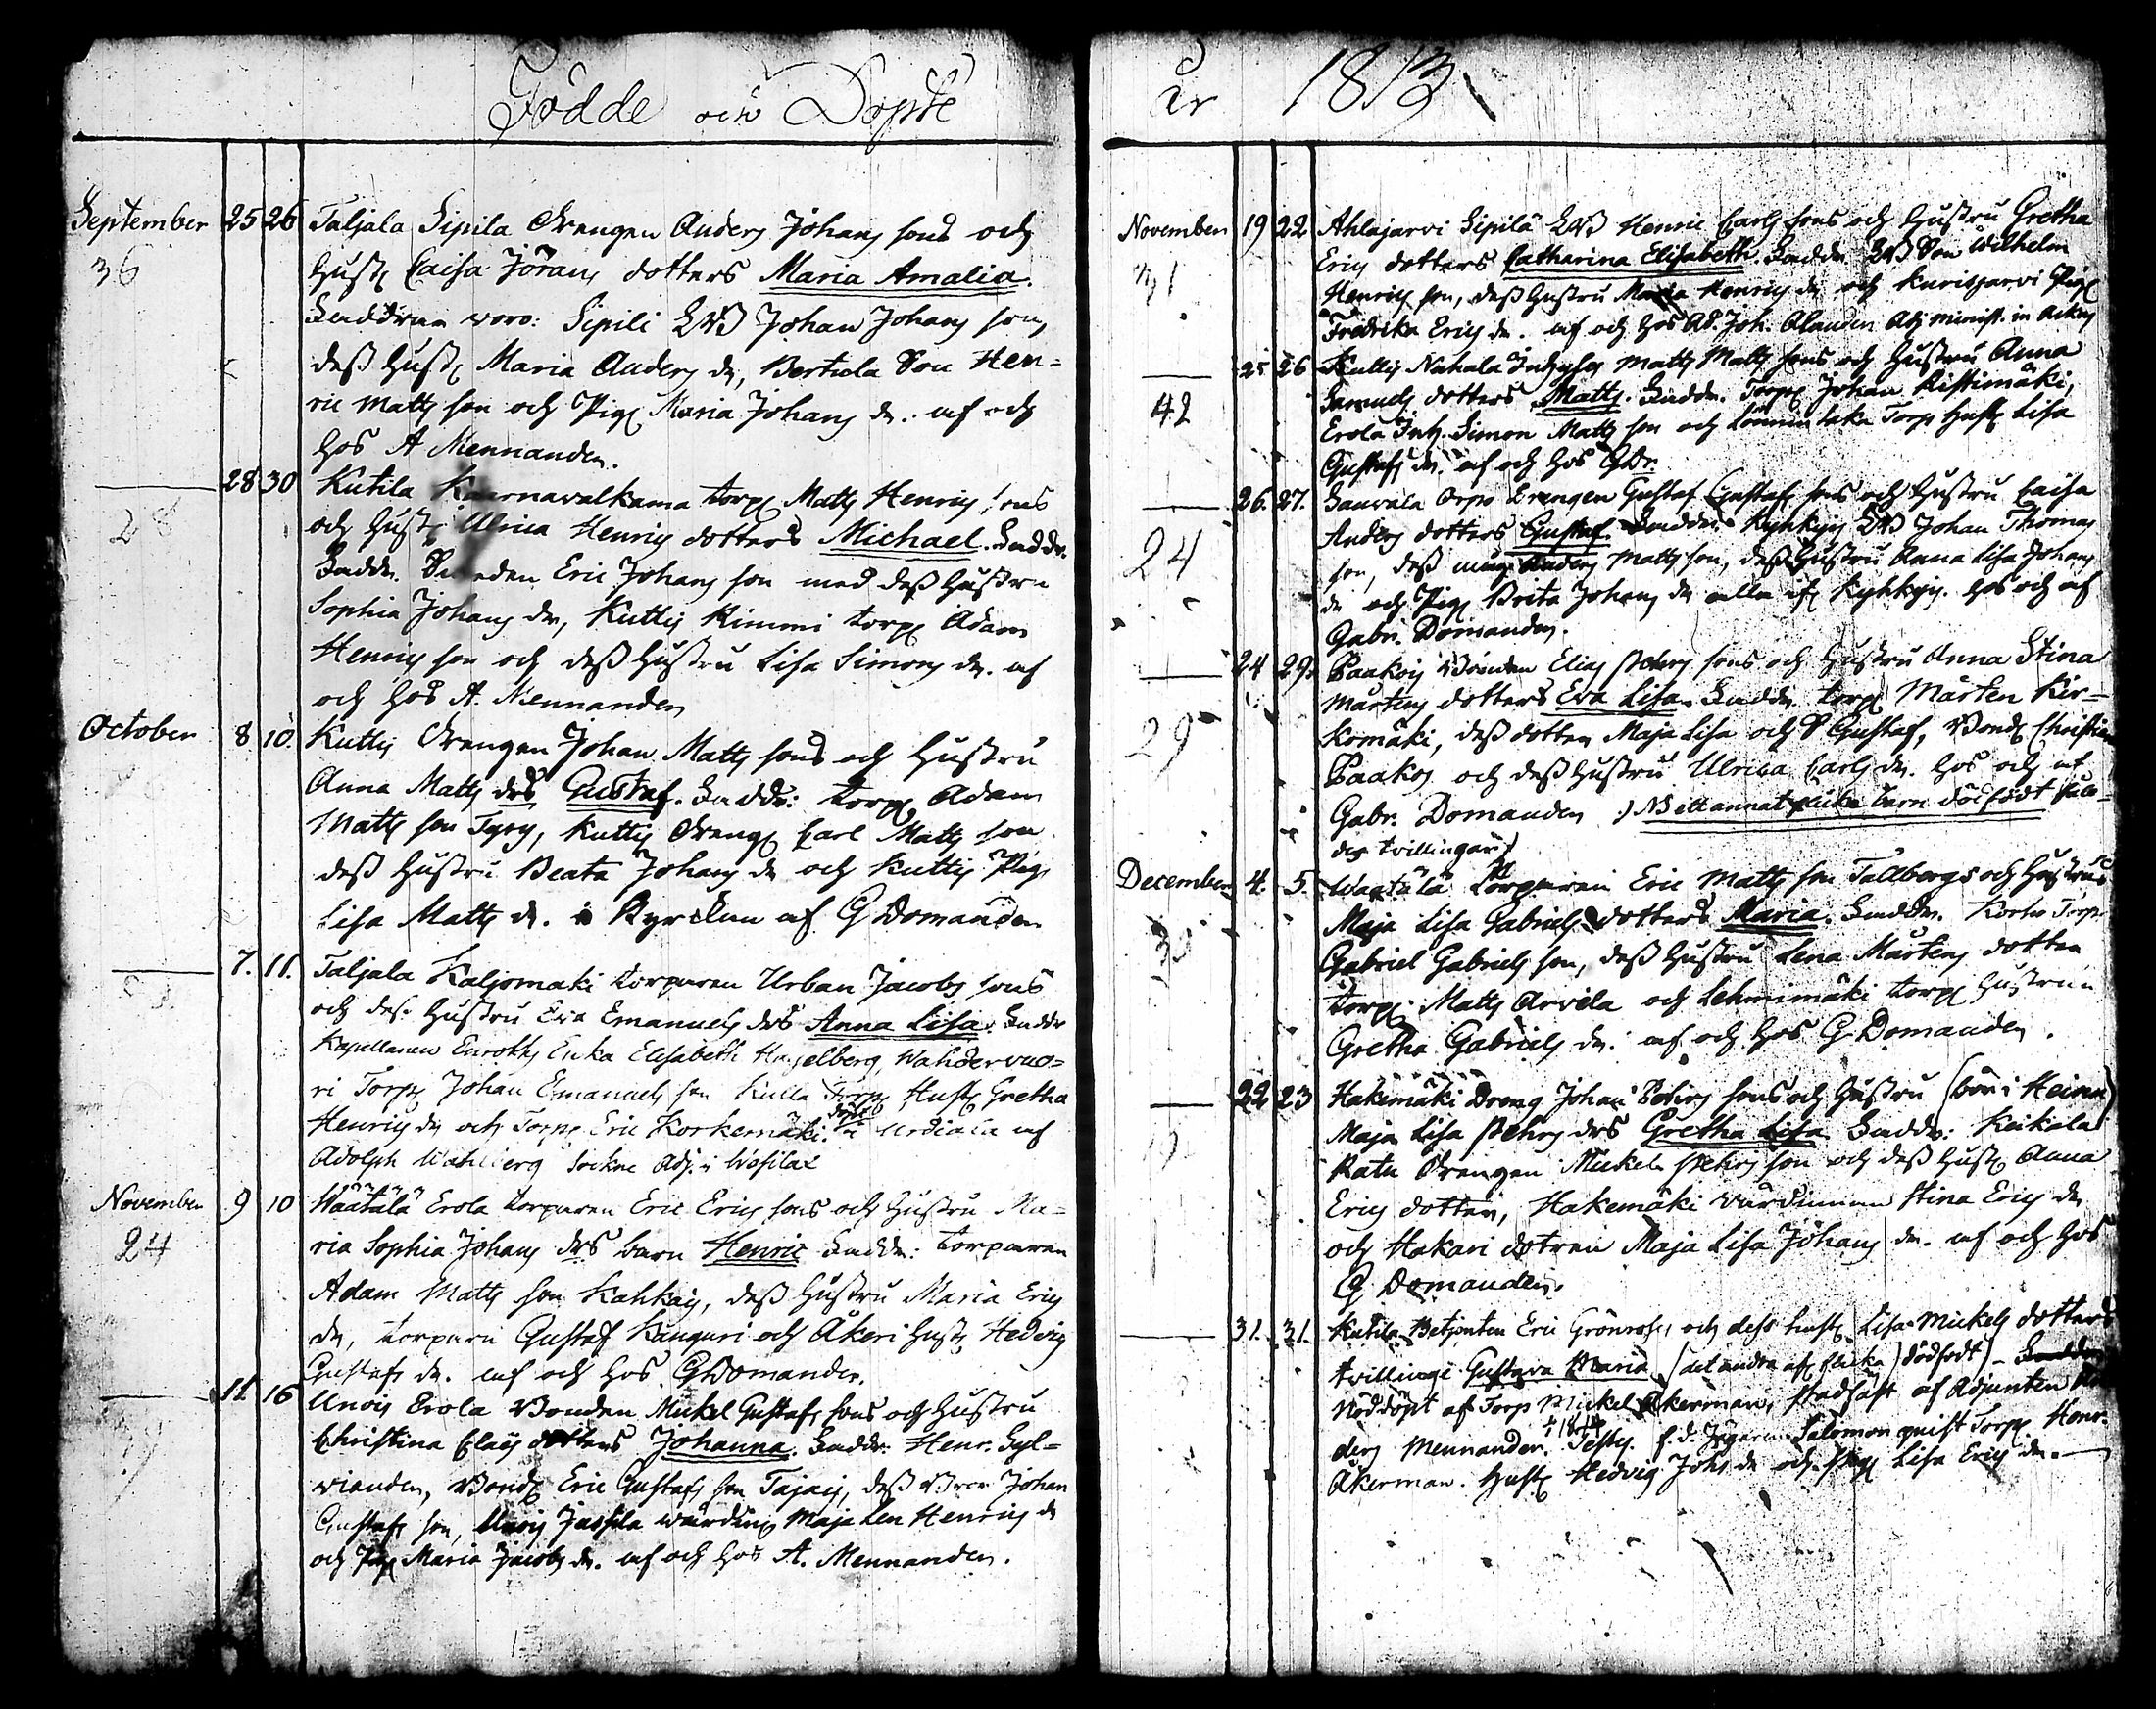 Födde och Döpte
September 25 26 Taljala Sipila Drengen Anders Johans sons och
36 hust Caisa Jörans dotters Maria Amalia.
Faddrar woro: Sipili Johan Johans son,
dess hust Maria Anders dr, Bertula Son Hen-
ric Matts son och Pig Maria Johans dr. af och
hos A Mennander.
28 30 Kutila Kaarnavalkama torp Matts Henrics sons
28 och hust Ulrica Henrics dotters Michael. Faddr.
Faddr. Eric Johans son med dess hustru
Sophia Johans dr, Kuttis Rimmi torp Adam
Henrics son och dess hustru Lisa Simons dr. af
och hos A. Mennander
October 8 10. Kuttis Drengen Johan Matts sons och hustru
Anna Matts drs Gustaf. Faddr: torp Adam
Matts son Tyry, Kuttis Dreng Carl Matts son
dess hustru Beata Johans dr och Kuttis Pig
Lisa Matts dr. i Kyrckan af G Domander
7. 11. Taljala Kaljomaki torparen Urban Jacobs sons
och des: hustru Eva Emanuels drs Anna Lisa. Faddr
Kapellanen Eurotts Enka Elisabeth Hasselberg, Wahdervuo-
ri Torp Johan Emanuels son Kulla torp Hust Gretha
Henrics dr och Torp Eric Korkemäki. döpt i Urdiala af
Adolph Wahlberg Sockne Adj. i Wesilax
November 9 10 Wäätälä Erola torparen Eric Erics sons och hustru Ma-
24 ria Sophia Johans drs barn Henric Faddr: torparen
Adam Matts son Kahkais, dess hustru Maria Erics
dr, torparn Gustaf Kanguri och Åkeri hust Hedvig
Gustafs dr. af och hos G Domander.
11. 16 Unois Erola Bonden Mickel Gustafs sons och hustru
Christina Elais dotters Johanna. Faddr. Henr. Syl-
viander, Bond Eric Gustafs son Tajais, dess Bror Johan
Gustafs son, Unois Jussila wärdin Maja Len Henrics dr
och Pig Maria Jacobs dr. af och hos A. Mennander.
År 1813
November 19 22 Ahlajarvi Sipilä Henric Carls sons och hustru Gretha
31 Erics dotters Catharina Elisabeth. Faddr Son Wilhelm
Henrics son, dess hustru Maria Henrics dr och Kurisjarvi Pig
Fredrika Erics dr. af och hos Ad. Joh. Alander Adj minist. in Ackas
25 26 Kuttis Nahala Inhyses Matts Matts sons och hustru Anna
42 Samuels dotters Matts. Faddr. Torp Johan Ristimäki,
Erola Inh. Simon Matts son och Torp hust Lisa
Gustafs dr. af och hos GDr.
26. 27. Sauvala Orpo Drengen Gustaf Gustafs sons och hustru Caisa
24 Anders dotters Gustaf. Faddr. Kyhkyis Johan Thomas
son, dess Anders Matts son, dess hustru Anna Lisa Johans
dr och Pig Brita Johans dr alla if Kyhkyis. hos och af
Gabr. Domander.
24 29. Paakois Bonden Elias Pehrs sons och hustru Anna Stina
29 Mårtens dotters Eva Lisa. Faddr. torp Mårten Kir-
komäki, dess dotter Maja Lisa och S Gustaf, Bond Christian
Paakos och dess hustru Ulrica Carls dr. hos och af
Gabr. Domander ) NB ett annat flicke barn död födt säle-
des tvillingar)
December 4. 5. Wäätälä torparen Eric Matts son Tallbergs och hustrus
Maja Lisa Gabriels dotters Maria. Faddr. Korho Torp
Gabriel Gabriels son, dess hustru Lena Mårtens dotter
torp Matts Arvela och Lehmimäki torp hustrun
Gretha Gabriels dr. af och hos G Domander.
22 23 Hakemäki Dreng Johan sons och hustru (bor i Heinu)
Maja Lisa Pehrs drs Gretha Lisa Faddr: Keikala
Ratu Drengen Mickel Pehrs son och dess hust Anna
Erics dotter, Hakemäki wärdinnan Stina Erics dr
och Hakari dotren Maja Lisa Johans dr. af och hos
G Domander.
31. 31. Kutila Betjenten Eric Grönroos, och dess hust Lisa Mickels dotters
tvillinge Gustava Maria (det andra af: flicka) dödfödt) –
Nöddöpt af Torp Mickel Åkerman, stadfäst af Adjuncten
Mennander. Testes. f.d. Jägaren Salomon quist Torp. Henr.
Åkerman. hust Hedvig Johs dr och Pig Lisa Erics dr.